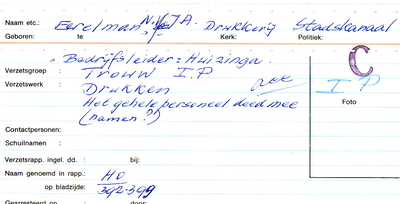 Naam etc.: Eerelman N.V. J.A. Drukkerij Stadskanaal
Geboren: te Kerk: Politiek:
Bedrijfsleider: Huizinga.
Verzetsgroep : Trouw I.P C
Verzetswerk : Drukken I P
Het gehele personeel deed mee Foto
(namen?)
Contactpersonen:
Schuilnaam :
Verzetsrapp. ingel. dd. : bij:
Naam genoemd in rapp.: HO
op bladzijde: 392-399
Gearresteerd op : door: